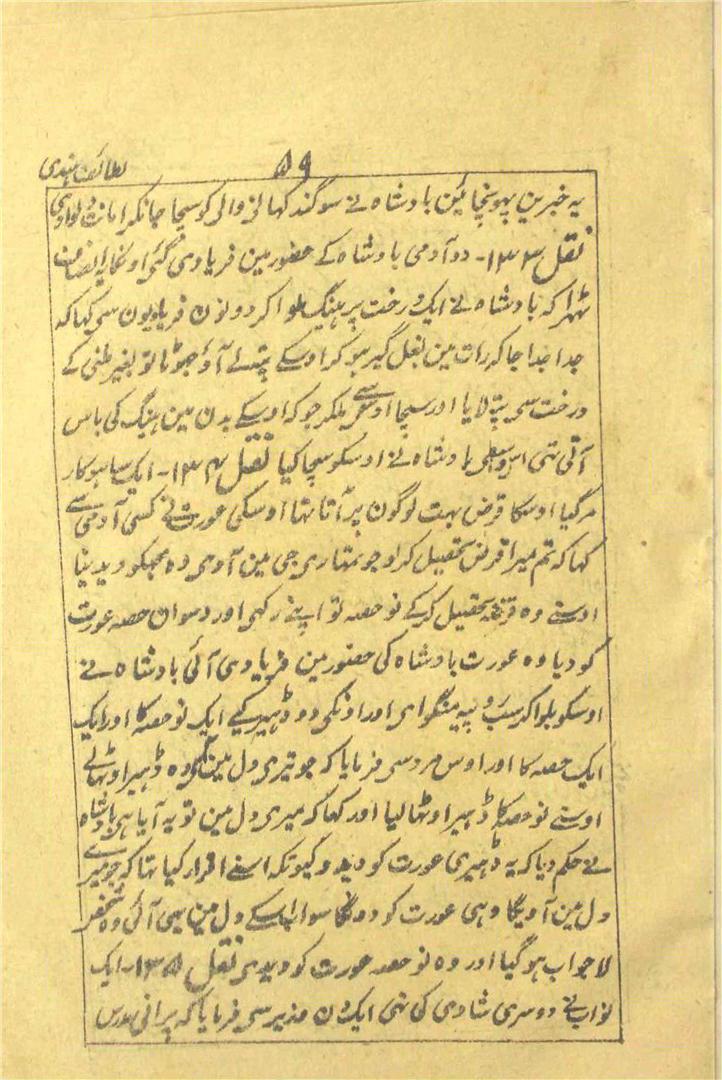 ۵۹ لطائف ہندی
یہ خبرین پہونچائین بادشاہ نے سوگند کہانی والی کو سچا جانکر امانت دلوادی
نقل ۱۳۳- دو آدمی بادشاہ کے حضور مین فریادی گئی اونکا یہ انصاف
ٹہرا کہ بادشاہ نے ایک درخت پر ہینگ ملوا کر دونون فریادیون سی کہا کہ
جدا جدا جا کہ رات مین بغل گیر ہو کر اوسکے پتے لے آؤ جہوٹا تو بغیر ملنی کے
درخت سی پتہ لایا اور سچا اوس سے ملکر جو کہ اوسکے بدن مین ہینگ کی باس
آتی تہی اس واسطی بادشاہ نے اوسکو سچا کیا نقل ۱۳۴- ایک ساہوکار
مرگیا اوسکا قرض بہت لوگون پر آتا تہا اوسکی عورت نے کسی آدمی سے
کہا کہ تم میرا قرض تحصیل کرلو جو تمہاری جی مین آوی وہ مجہکو دیدینا
اوسنے وہ قرضہ تحصیل کرکے نو حصہ تو اپنے رکہی اور دسوان حصہ عورت
کو دیا وہ عورت بادشاہ کی حضور مین فریادی آئی بادشاہ نے
اوسکو بلوا کر سب روپیہ منگوای اور اونکی دو ڈہیر کیے ایک نو حصہ کا اور ایک
ایک حصہ کا اور اوس مرد سی فرمایا کہ جو تیری دل مین آئی وہ ڈہیر اوٹہالے
اوسنے نو حصہ کا ڈہیر اوٹہالیا اور کہا کہ میری دل مین تو یہ آیا ہی بادشاہ
نے حکم دیا کہ یہ ڈہیری عورت کو دیدو کیونکہ اسنے اقرار کیا تہا کہ جو میرے
دل مین آویگا وہی عورت کو دونگا سو اب اسکے دل مین یہی آئی وہ شخص
لاجواب ہوگیا اور وہ نو حصہ عورت کو دیدی نقل ۱۳۵- ایک
نواب نے دوسری شادی کی تہی ایک دن وزیر سی فرمایا کہ پرانی